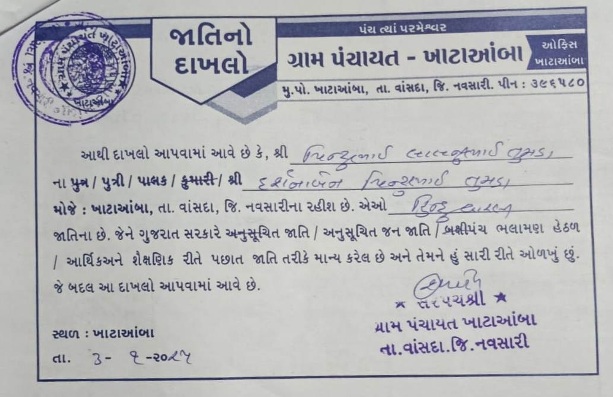 પંચ ત્યાં પરમેશ્વર
જાતિનો
દાખલો
ગ્રામ પંચાયત - ખાટાઆંબા
ઓફિસ
ખાટાઆંબા
મુ.પો. ખાટાઆંબા, તા. વાંસદા, જિ. નવસારી. પીન : ૩૯૬૫૮૦
ગ્રામ પંચાયત ખાટાઆંબા
આથી દાખલો આપવામાં આવે છે કે, શ્રી
ના પુત્ર / પુત્રી / પાલક / કુમારી / શ્રી
મોજે : ખાટાઆંબા, તા. વાંસદા, જિ. નવસારીના રહીશ છે. એઓ હિન્દુ
જાતિના છે. જેને ગુજરાત સરકારે અનુસૂચિત જાતિ / અનુસૂચિત જન જાતિ / બક્ષીપંચ ભલામણ હેઠળ
/ આર્થિકઅને શૈક્ષણિક રીતે પછાત જાતિ તરીકે માન્ય કરેલ છે અને તેમને હું સારી રીતે ઓળખું છું.
જે બદલ આ દાખલો આપવામાં આવે છે.
સરપંચશ્રી
ગ્રામ પંચાયત ખાટાઆંબા
તા.વાંસદા.જિ.નવસારી
સ્થળ : ખાટાઆંબા
તા.